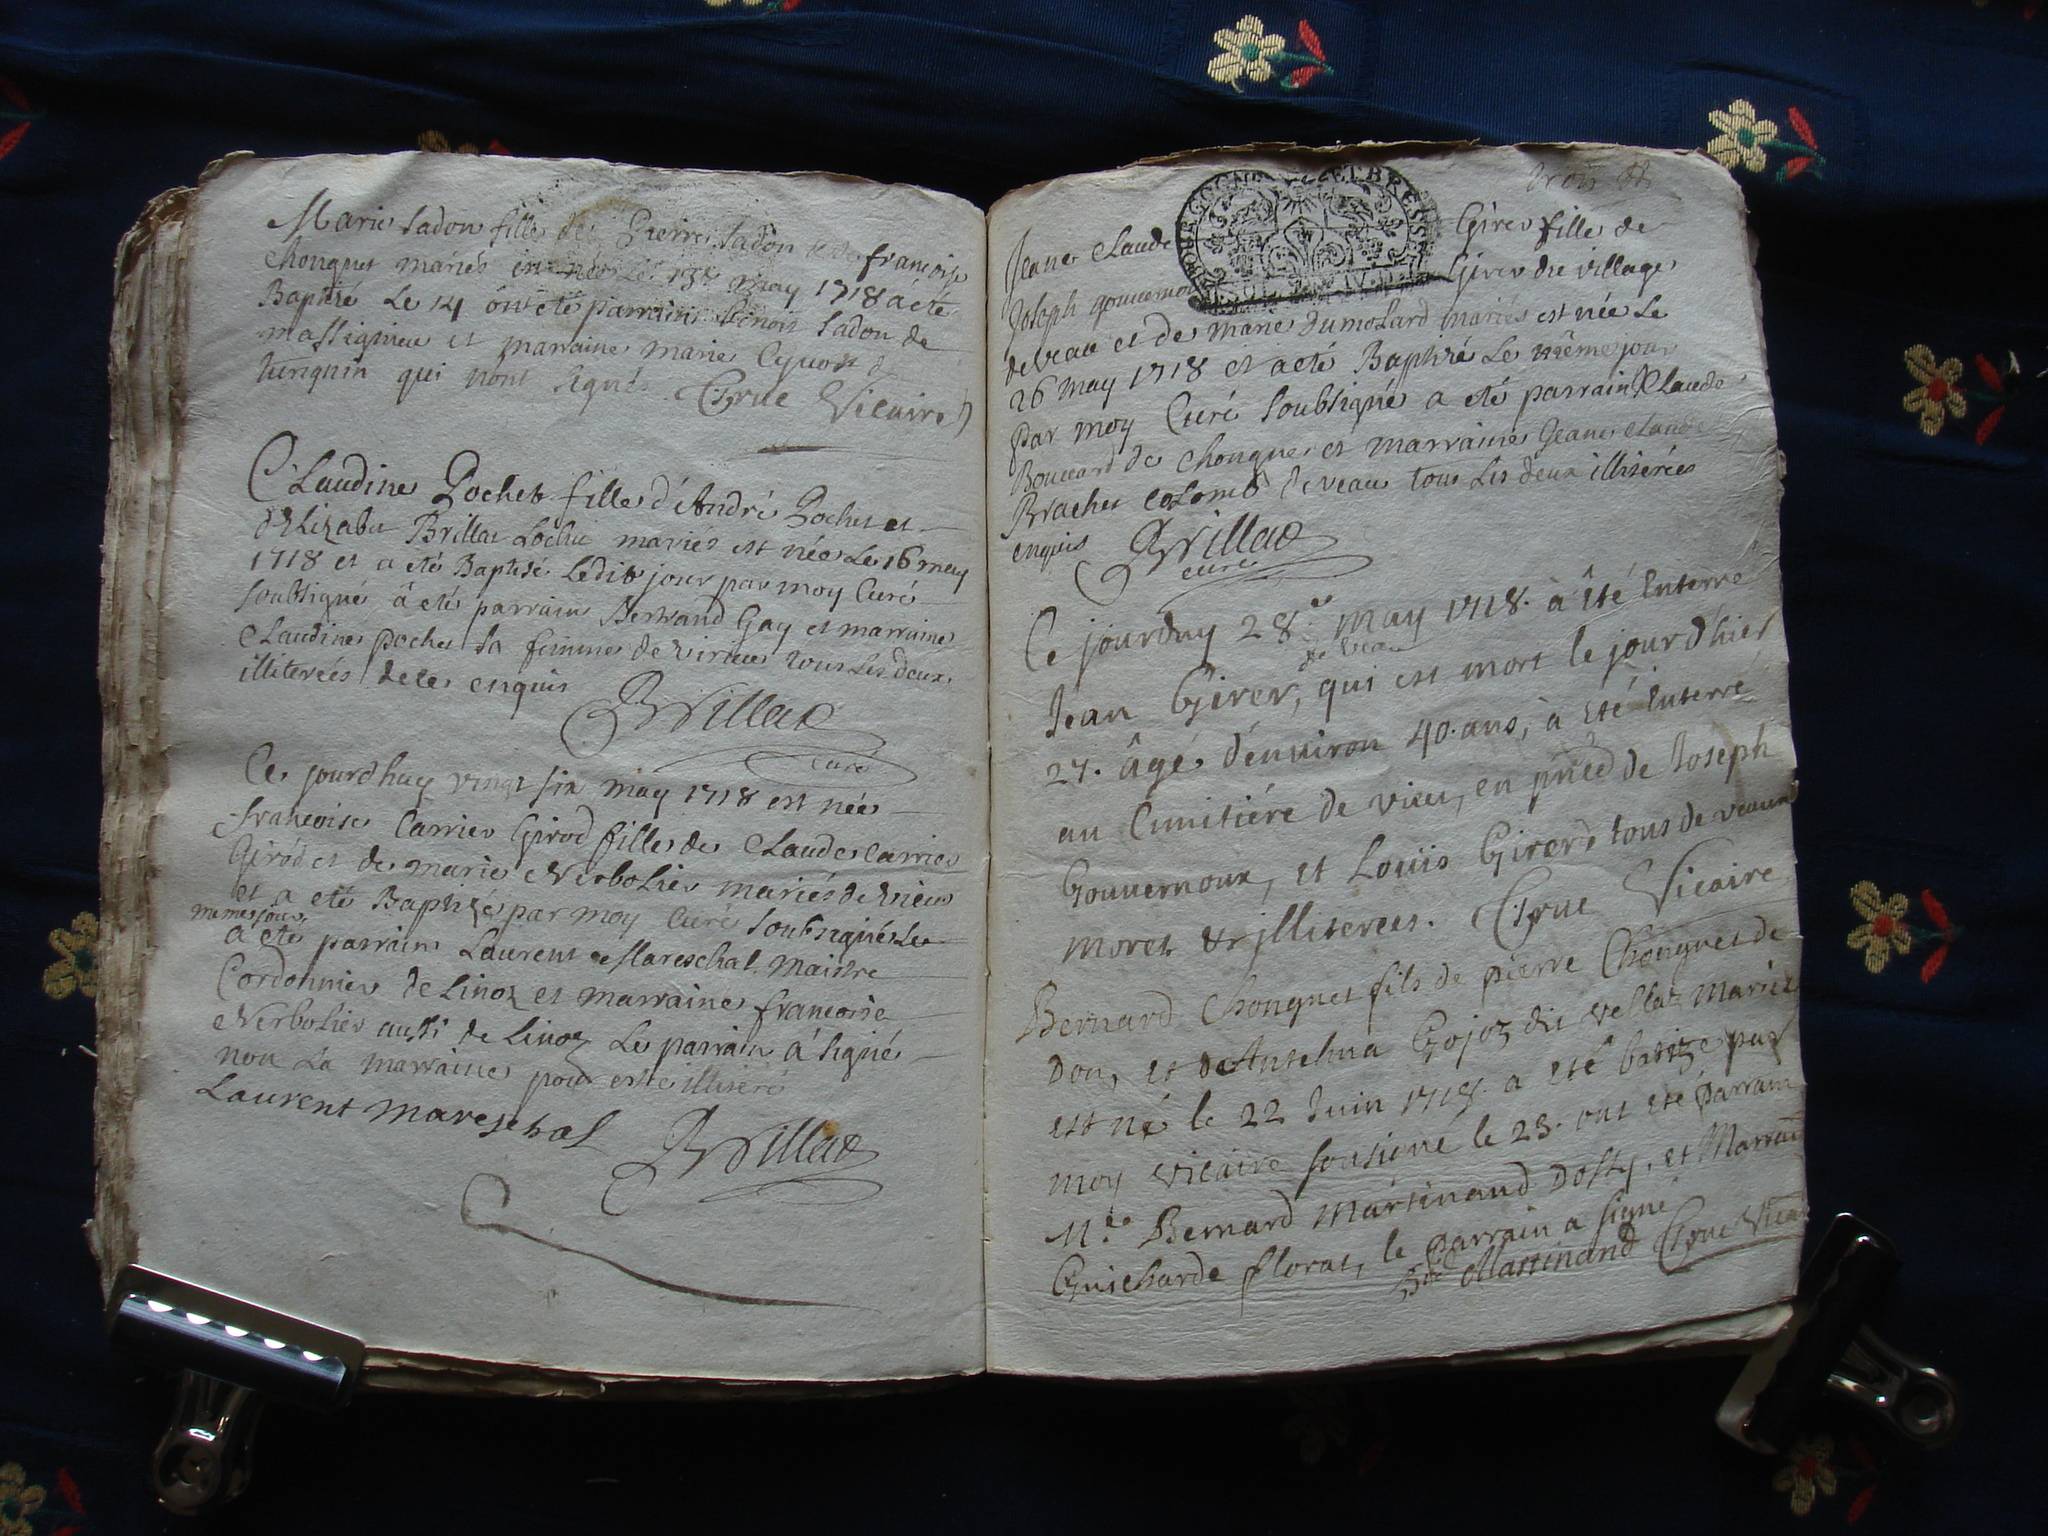 Marie Sadon fille de Pierre Sadon et de françoise
Chonguet mariés est née Le 13e may 1718 a été
Baptisé Le 14 ont eté parrain Benoit Sadon de
massignieu et marraine marie
qui nont signés. Vicaire
Claudine Pochet fille d'André Pochet et
d'Elizabet Brillat mariés est née Le 16 may
1718 et a eté Baptisé Ledit jour par moy Curé
soubsigné â eté parrain Bertrand Gay et marraine
Claudine pochet sa femme de virieu tous Les deux
illiterés de ce enquis
Brillat
curé
Ce jourdhuy vingt six may 1718 est née
françoise Carrier Girod fille de Claude Carrier
Girod et de marie Nerbolier mariés de vieu
et a eté Baptizé par moy Curé soubsigné Le
meme jour
a eté parrain Laurent Mareschal Maistre
Cordonnier de Linoz et marraine françoise
Nerbolier aussi de Linoz Le parrain â signé
non La marraine pour estre illiteré
Laurent mareschal
Brillat
trois
Jeane Claude Girer fille de
Joseph gouvernou Girer du village
de veau et de marie Dumolard mariés est née Le
26 may 1718 et a eté Baptisé Le même jour
par moy Curé soubsigné a eté parrain Claude
Bouvard de chongnes et marraine Jeane Claude
Brachet Colomb de veau tous Les deux illiterées
enquis Brillat
curé
Ce jourduy 28e may 1718. à été Enterré
de veau
Jean Girer, qui est mort le jour d'hier
27. âgé d'environ 40. ans, à été Enterré
au Cimitiére de vieu, en pñce de Joseph
Gouvernoux, et Louïs Girerd tous de veaux
Moret & illiterees. Vicaire
Bernard Chonguet fils de pierre Chonguet de
Don, et de Anselma Gojoz dit vellaz Mariez
est né le 22 Juin 1718. a eté batize par
moy vicaire sousigné le 23. ont eté parrain
Mre Bernard Martinand Dosty, et Marraine
Guicharde florat, le parrain a signé
Martinand